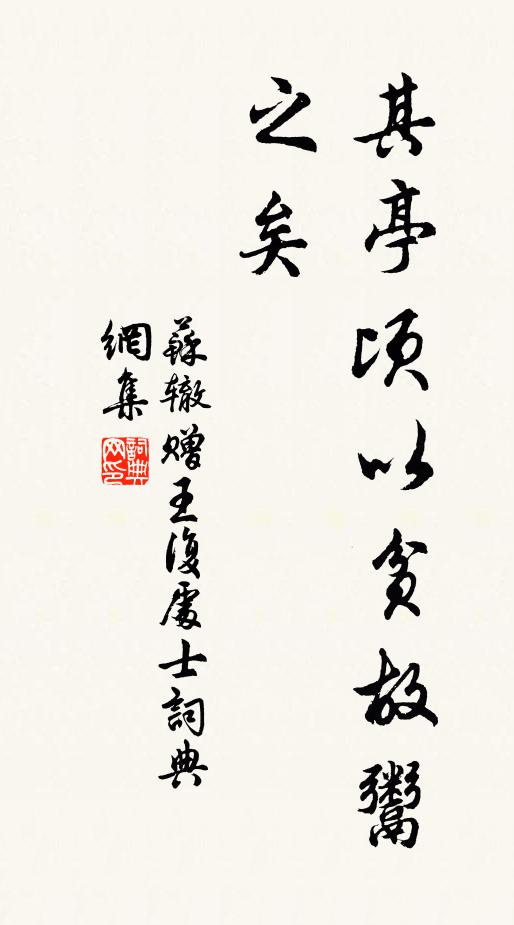 其亭頃以貧故鬻
之矣
蘇辙赠王復處士詞典
網集
詞典
网印